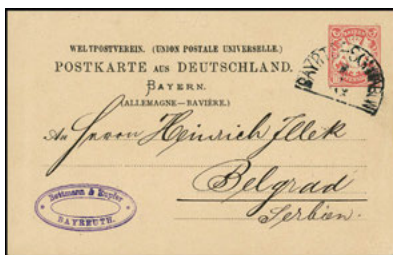 WELTPOSTVEREIN. (UNION POSTALE UNIVERSELLE.)
POSTKARTE AUS DEUTSCHLAND.
BAYERN.
(ALLEMAGNE—BAVIÈRE.)
An Herrn Heinrich Illek
Belgrad
Serbien.
& 
BAYREUTH.